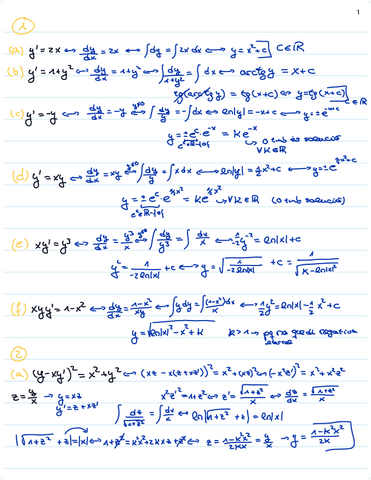 1
1
(a) y' = 2x ↔ dy/dx = 2x ↔ ∫dy = ∫2x dx ↔ y = x² + c] C∈ℝ
(b) y' = 1+y² ↔ dy/dx = 1+y² ↔ ∫dy/1+y² = ∫dx ↔ arctg y = x+c
tg(arctg y) = tg(x+c) ↔ y = tg(x+c)] C∈ℝ
(c) y' = -y ↔ dy/dx = -y ↔ y≠0 ∫dy/y = -∫dx ↔ ln|y| = -x+c ↔ y = ±e^(-x+c)
y = ±e^c·e^-x = Ke^-x
0 sol
∀K∈ℝ
(d) y' = xy ↔ dy/dx = xy ↔ y≠0 ∫dy/y = ∫x dx ↔ ln|y| = ½x²+c ↔ y = ±e^(½x²+c)
y = ±e^c·e^½x² = Ke^½x² ∀K∈ℝ (0
(e) xy' = y³ ↔ dy/dx = y³/x ↔ y≠0 ∫dy/y³ = ∫dx/x ↔ 1/-2 y^-2 = ln|x|+c
y² = 1/-2ln|x| +c ↔ y = √1/-2ln|x| +c = 1/√K-ln|x|²
(f) xyy' = 1-x² ↔ dy/dx = 1-x²/xy ↔ ∫y dy = ∫(1-x²)/x dx ↔ ½y² = ln|x| - ½x² + c
y = √ln|x|²-x²+K K>1 → negativa
2
(a) (y-xy')² = x²+y² ↔ (xz - x(z+xz'))² = x²+(xz)² ↔ (-x²z')² = x²+x²z²
z = y/x → y = xz
y' = z+xz'
x²z'² = 1+z² ↔ z' = √1+z²/x ↔ dz/dx = √1+z²/x
∫dz/√1+z² = ∫dx/x ↔ ln|√1+z² + z| = ln|x|
|√1+z² + z| = |x| ↔ 1+z² = K²x² 2Kxz+z² ↔ z = 1-K²x²/2Kx = y/x → y = 1-K²x²/2K